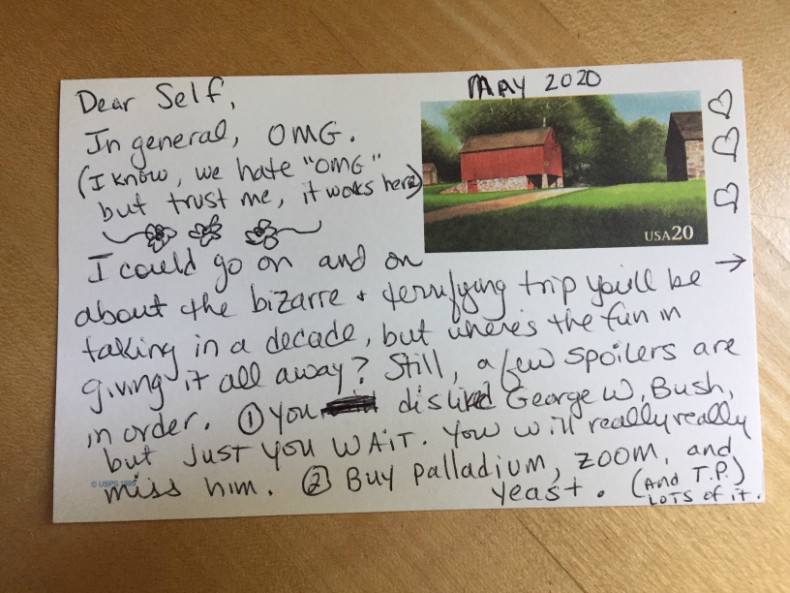 MAY 2020
Dear Self,
In general, OMG.
(I know, we hate "OMG"
but trust me, it works here)
USA20
I could go on and on →
about the bizarre + terrifying trip you'll be
taking in a decade, but where's the fun in
giving it all away? Still, a few spoilers are
in order. ① You disliked George W. Bush,
but JUST YOU WAIT. You will really really
miss him. ② Buy Palladium, ZOOM, and
yeast. (And T.P.)
LOTS of it.
© USPS